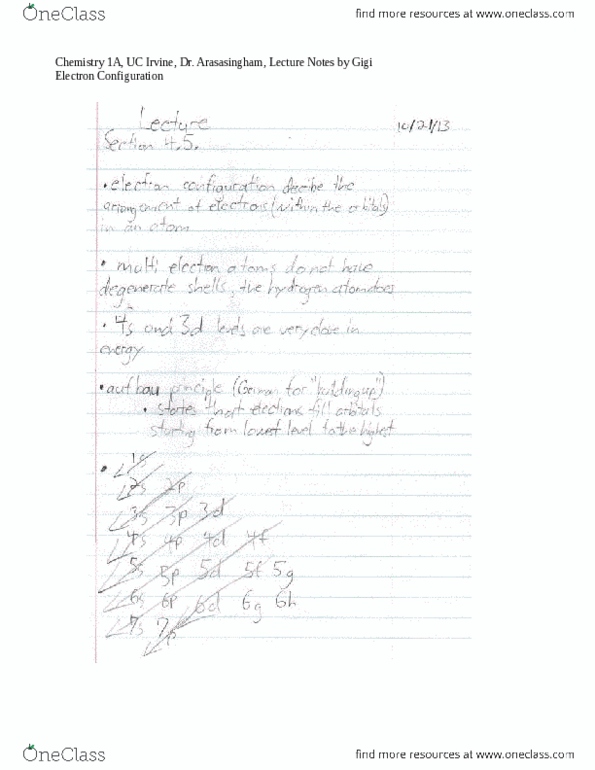 OneClass
find more resources at www.oneclass.com
Chemistry 1A, UC Irvine, Dr. Arasasingham, Lecture Notes by Gigi
Electron Configuration
Lecture
10/21/13
Section 4.5.
• electron configuration decribe the
arrangement of electrons (within the orbitals)
in an atom
• multi electron atoms do not have
degenerate shells, the hydrogen atom does
• 4s and 3d levels are very close in
energy
• auf bau principle (German for "building up")
• states that electrons fill orbitals
starting from lowest level to the highest
• 1s
2s 2p
3s 3p 3d
4s 4p 4d 4f
5s 5p 5d 5f 5g
6s 6p 6d 6g 6h
7s 7p
OneClass
find more resources at www.oneclass.com